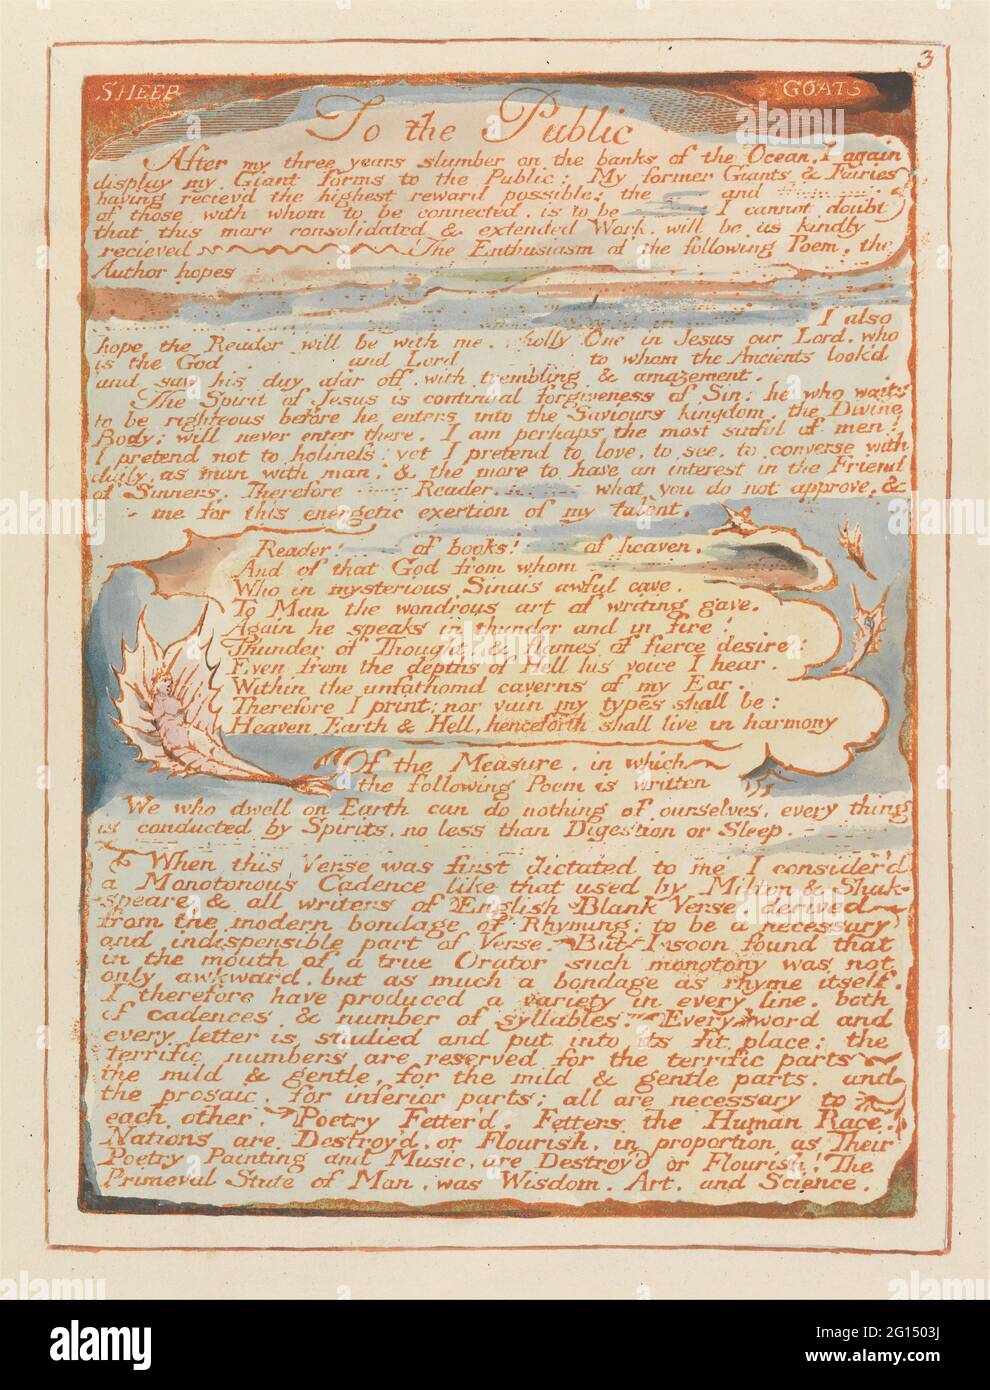 3
SHEEP GOATS
To the Public
After my three years slumber on the banks of the Ocean, I again
display my Giant forms to the Public: My former Giants & Fairies
having reciev'd the highest reward possible: the and
of those with whom to be connected, is to be I cannot doubt
that this more consolidated & extended Work, will be as kindly
recieved The Enthusiasm of the following Poem, the
Author hopes
I also
hope the Reader will be with me, wholly One in Jesus our Lord, who
is the God and Lord to whom the Ancients look'd
and saw his day afar off, with trembling & amazement.
The Spirit of Jesus is continual forgiveness of Sin: he who waits
to be righteous before he enters into the Saviours kingdom, the Divine
Body; will never enter there. I am perhaps the most sinful of men!
I pretend not to holiness; yet I pretend to love, to see, to converse with
daily, as man with man, & the more to have an interest in the Friend
of Sinners. Therefore Reader, what you do not approve, &
me for this energetic exertion of my talent.
Reader! of books! of heaven,
And of that God from whom
Who in mysterious Sinais awful cave,
To Man the wondrous art of writing gave,
Again he speaks in thunder and in fire!
Thunder of Thought, & flames of fierce desire:
Even from the depths of Hell his voice I hear,
Within the unfathomd caverns of my Ear.
Therefore I print; nor vain my types shall be:
Heaven, Earth & Hell, henceforth shall live in harmony
Of the Measure, in which
the following Poem is written
We who dwell on Earth can do nothing of ourselves, every thing
is conducted by Spirits, no less than Digestion or Sleep.
When this Verse was first dictated to me I consider'd
a Monotonous Cadence like that used by Milton & Shak-
-speare & all writers of English Blank Verse, derived
from the modern bondage of Rhyming; to be a necessary
and indispensible part of Verse. But I soon found that
in the mouth of a true Orator such monotony was not
only awkward, but as much a bondage as rhyme itself.
I therefore have produced a variety in every line, both
of cadences & number of syllables. Every word and
every letter is studied and put into its fit place: the
terrific numbers are reserved for the terrific parts
the mild & gentle, for the mild & gentle parts, and
the prosaic, for inferior parts; all are necessary to
each other. Poetry Fetter'd, Fetters the Human Race!
Nations are Destroy'd, or Flourish, in proportion as Their
Poetry Painting and Music, are Destroy'd or Flourish! The
Primeval State of Man, was Wisdom, Art, and Science.
alamy
Image ID: 2G1503J
www.alamy.com